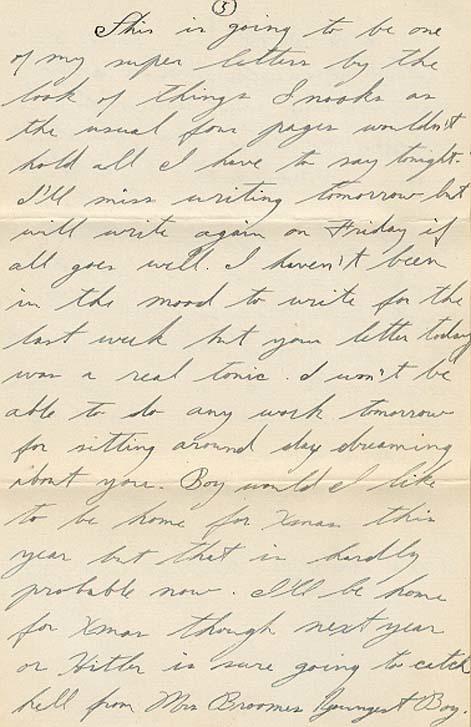 (5)
This is going to be one
of my super letters by the
look of things Snooks as
the usual four pages wouldn't
hold all I have to say tonight.
I'll miss writing tomorrow but
will write again on Friday if
all goes well. I haven't been
in the mood to write for the
last week but your letter today
was a real tonic. I won't be
able to do any work tomorrow
for sitting around day dreaming
about you. Boy would I like
to be home for Xmas this
year but that is hardly
probable now. I'll be home
for Xmas though next year
or Hitler is sure going to catch
hell from Mrs Broomes Youngest Boy.